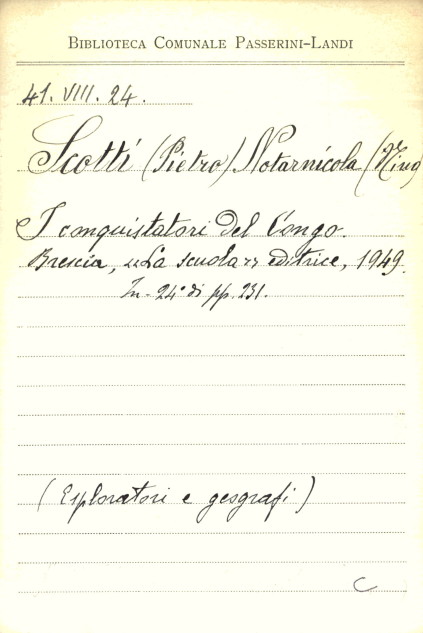 BIBLIOTECA COMUNALE PASSERINI-LANDI
41. VIII. 24.
Scotti (Pietro) Notarnicola (Nino)
I conquistatori del Congo.
Brescia, «La scuola» editrice, 1949.
In-24° di pp. 231.
(Esploratori e geografi)
C